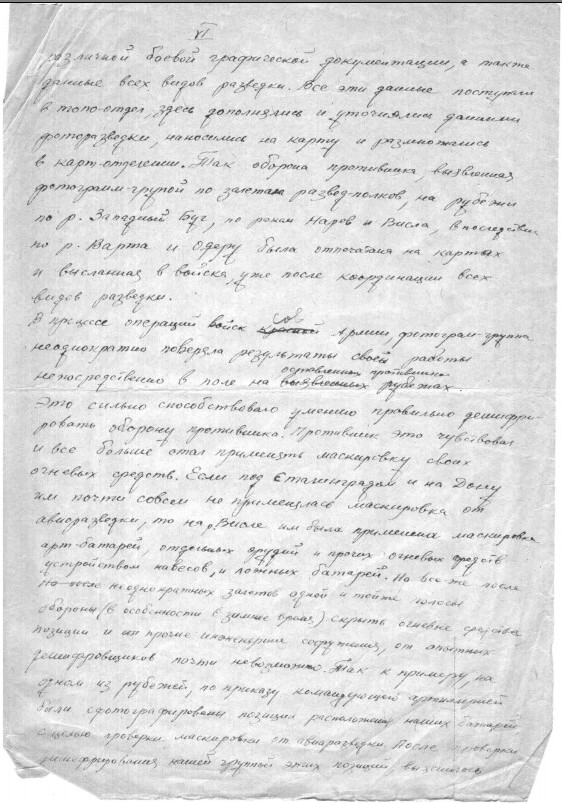 VI
различной боевой графической документации, а также
данные всех видов разведки. Все эти данные поступали
в топо-отдел, здесь дополнялись и уточнялись данными
фоторазведки, наносились на карту и размножались
в карт-отделении. Так оборона противника, выявленная
фотограм-групой по залетам развед-полков, на рубежи
по р. Западный Буг, по рекам Нарев и Висла, в последствии
по р. Варта и Одеру была отпечатана на картах
и высланная в войска, уже после координации всех
видов разведки.
В процессе операций войск Сов. Красной Армии, фотограм-группа
неоднократно поверяла результаты своей работы
оставленных противником
непосредственно в поле на выявленных рубежах.
Это сильно способствовало умению правильно дешифри-
ровать оборону противника. Противник это чувствовал
и все больше стал применять маскировку своих
огневых средств. Если под Сталинградом и на Дону
им почти совсем не применялась маскировка от
авиоразведки, то на р. Висле им была применена маскировка
арт-батарей, отдельных орудий и прочих огневых средств
устройством навесов, и ложных батарей. Но все же после
На после неоднократных залетов одной и тойже полосы
обороны (в особенности в зимнее время) скрыть огневые средства
позиции и прочие инженерные сооружения, от опытных
дешифровщиков почти невозможно. Так к примеру, на
одном из рубежей, по приказу командующей артилерией
были сфотографированы позиции расположения наших батарей
с целью проверки маскировки от авиаразведки. После проверки
дешифрирования нашей групой этих позиций,